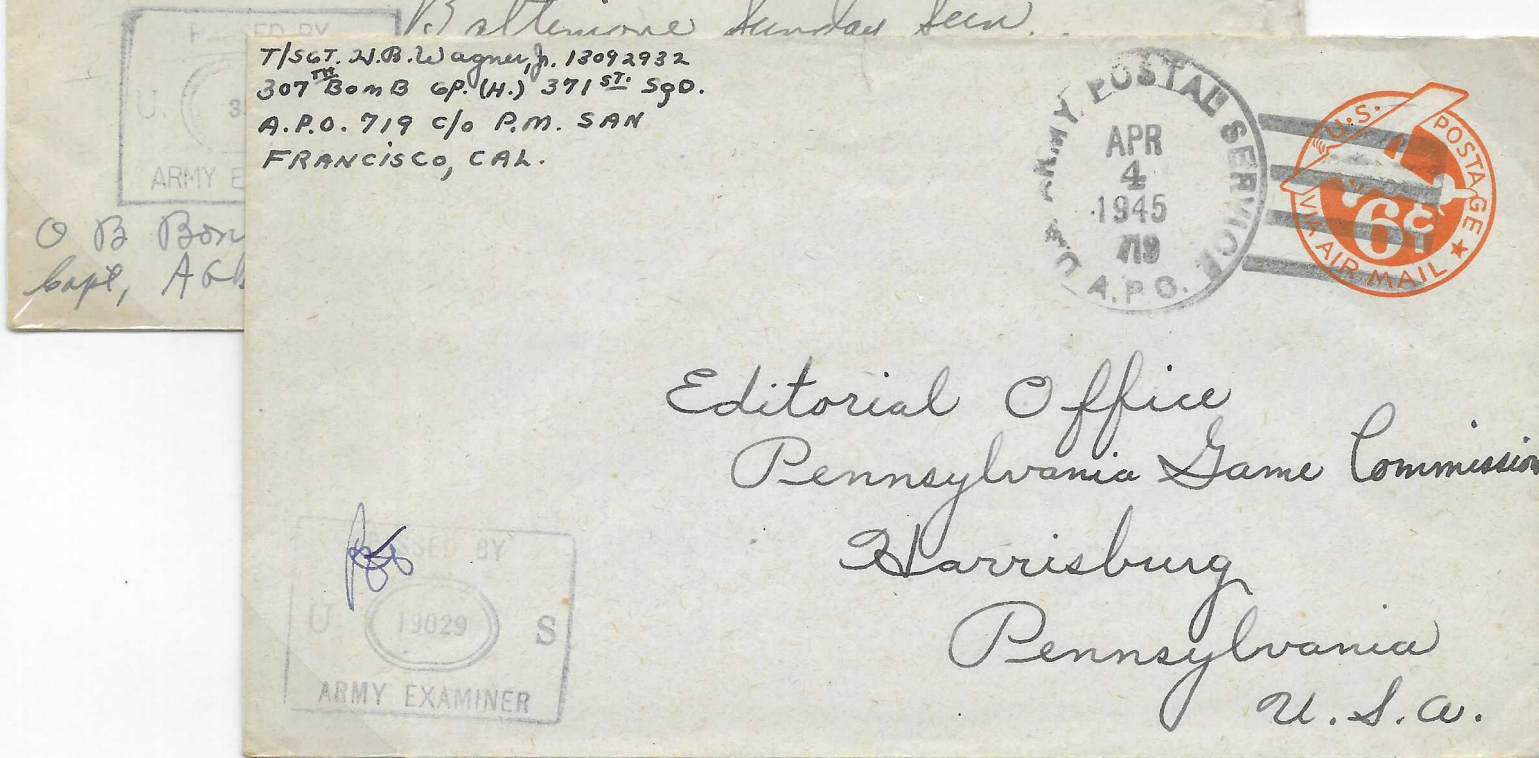 PASSED BY
U.
ARMY E
Baltimore Sunday Sun.
O B Bon
Capt, AGD
T/SGT. H.B. Wagner, Jr. 13092932
307TH BOMB GP. (H.) 371ST. SqD.
A.P.O. 719 c/o P.M. SAN
FRANCISCO, CAL.
U.S. ARMY. POSTAL SERVICE
APR
4
1945
719
A.P.O.
U.S. POSTAGE
6¢
VIA AIR MAIL
Editorial Office
Pennsylvania Game Commission
Harrisburg
Pennsylvania
U.S.A.
PASSED BY
U. 19029 S
ARMY EXAMINER